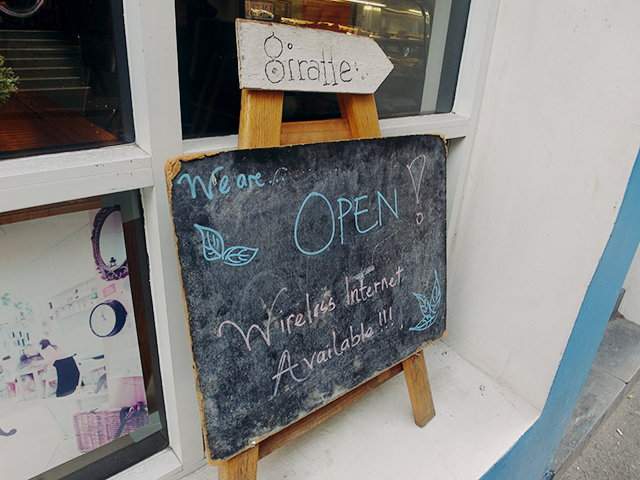 giraffe
We are...
OPEN!
Wireless Internet
Available!!!